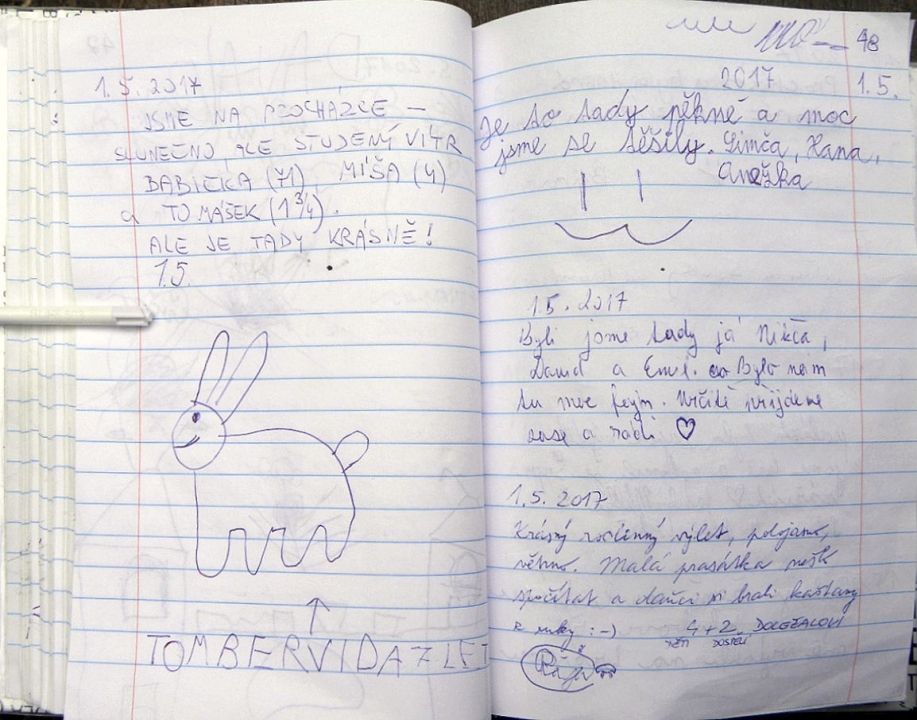 1.5.2017
JSME NA PROCHÁZCE –
SLUNEČNO ALE STUDENÝ VÍTR
BABIČKA (71) MÍŠA (4)
a TOMÁŠEK (1 3/4).
ALE JE TADY KRÁSNĚ!
1.5.
TOMBERVIDA 7 LET
48
2017 1.5.
Je to tady pěkné a moc
jsme se těšily. Simča, Hana,
Anežka
1.5.2017
Byli jsme tady já Nikča,
David a Emi. Bylo nám
tu moc fajn. Určitě přijdeme
zase a rádi ♡
1.5.2017
Krásný rodinný výlet, polojasno,
větrno. Malá prasátka nešla
spočítat a daňci si brali kaštany
z ruky :-) 4+2 DOLEŽALOVI
DĚTI DOSPĚLÍ